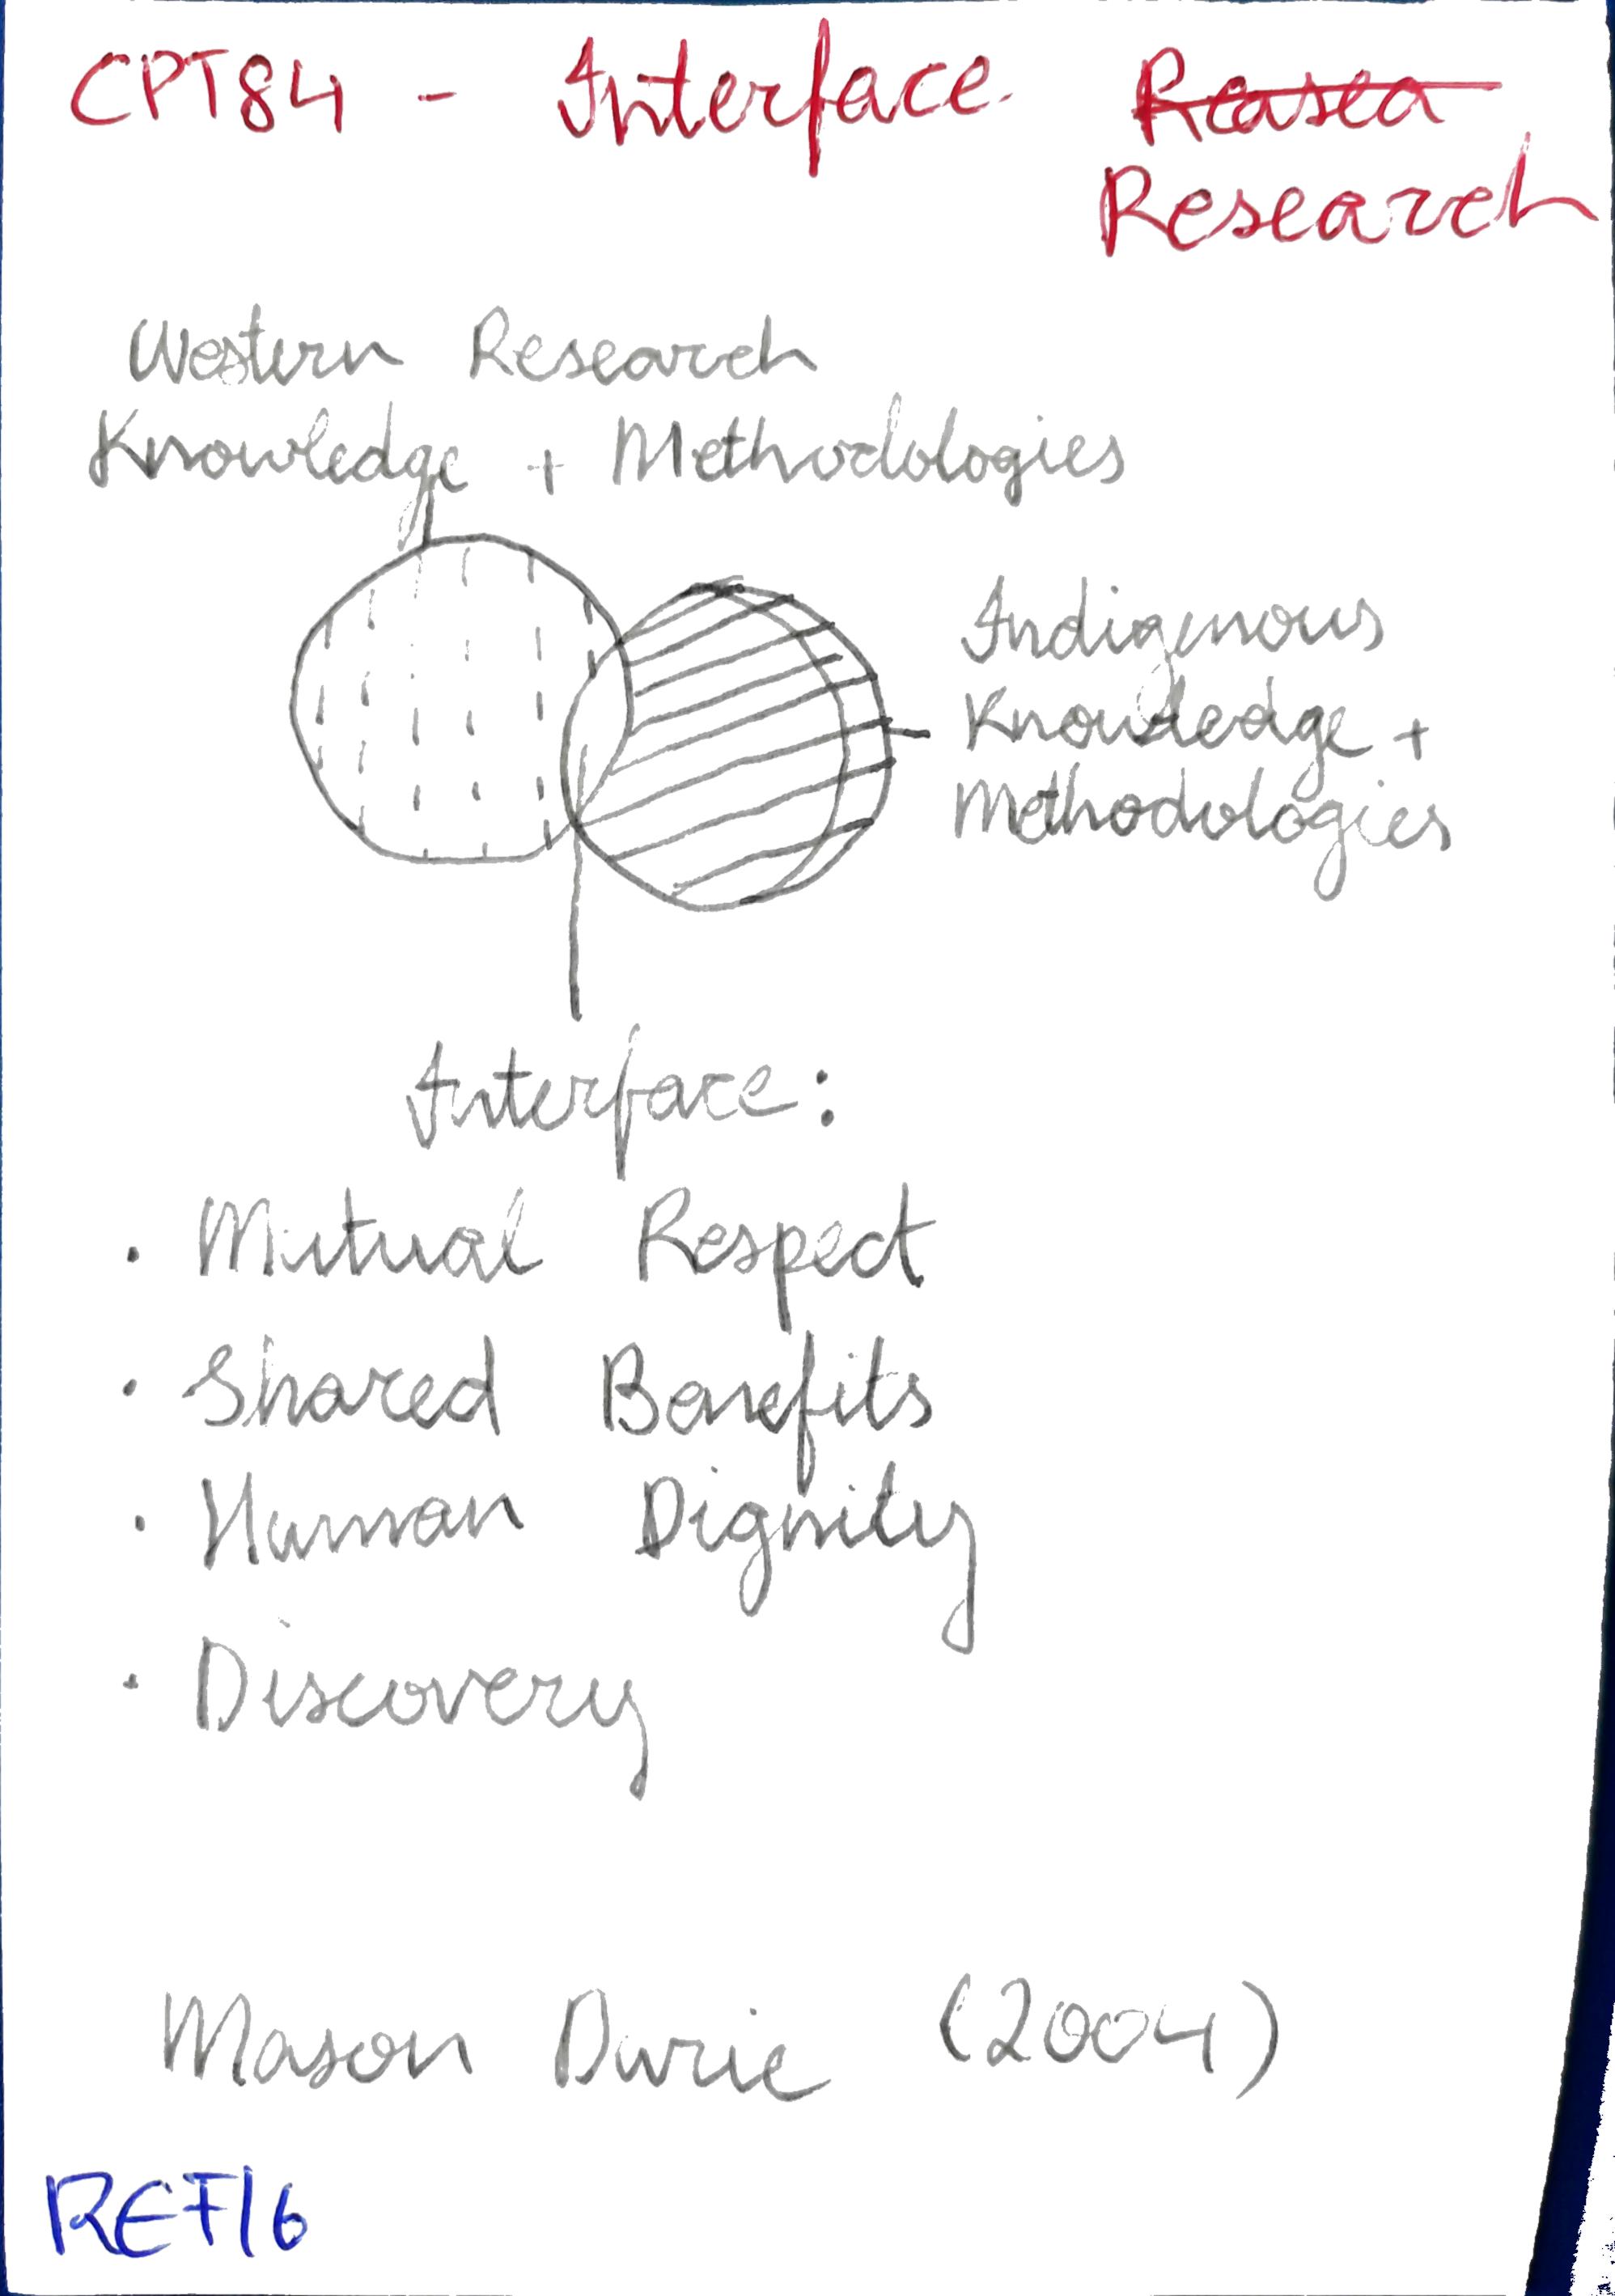 CPT84 - Interface Reasea
Research
Western Research
Knowledge + Methodologies
Indigenous
Knowledge +
Methodologies
Interface:
· Mutual Respect
· Shared Benefits
· Human Dignity
· Discovery
Mason Durie (2004)
REF16